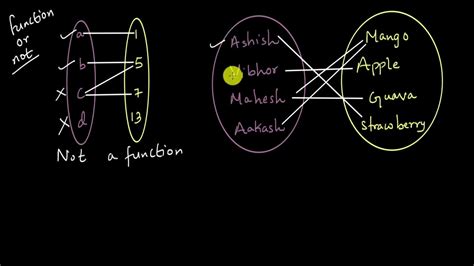 function
or
not
a 1
b 5
c 7
d 13
Not a function
Ashish Mango
Vibhor Apple
Mahesh Guava
Aakash Strawberry